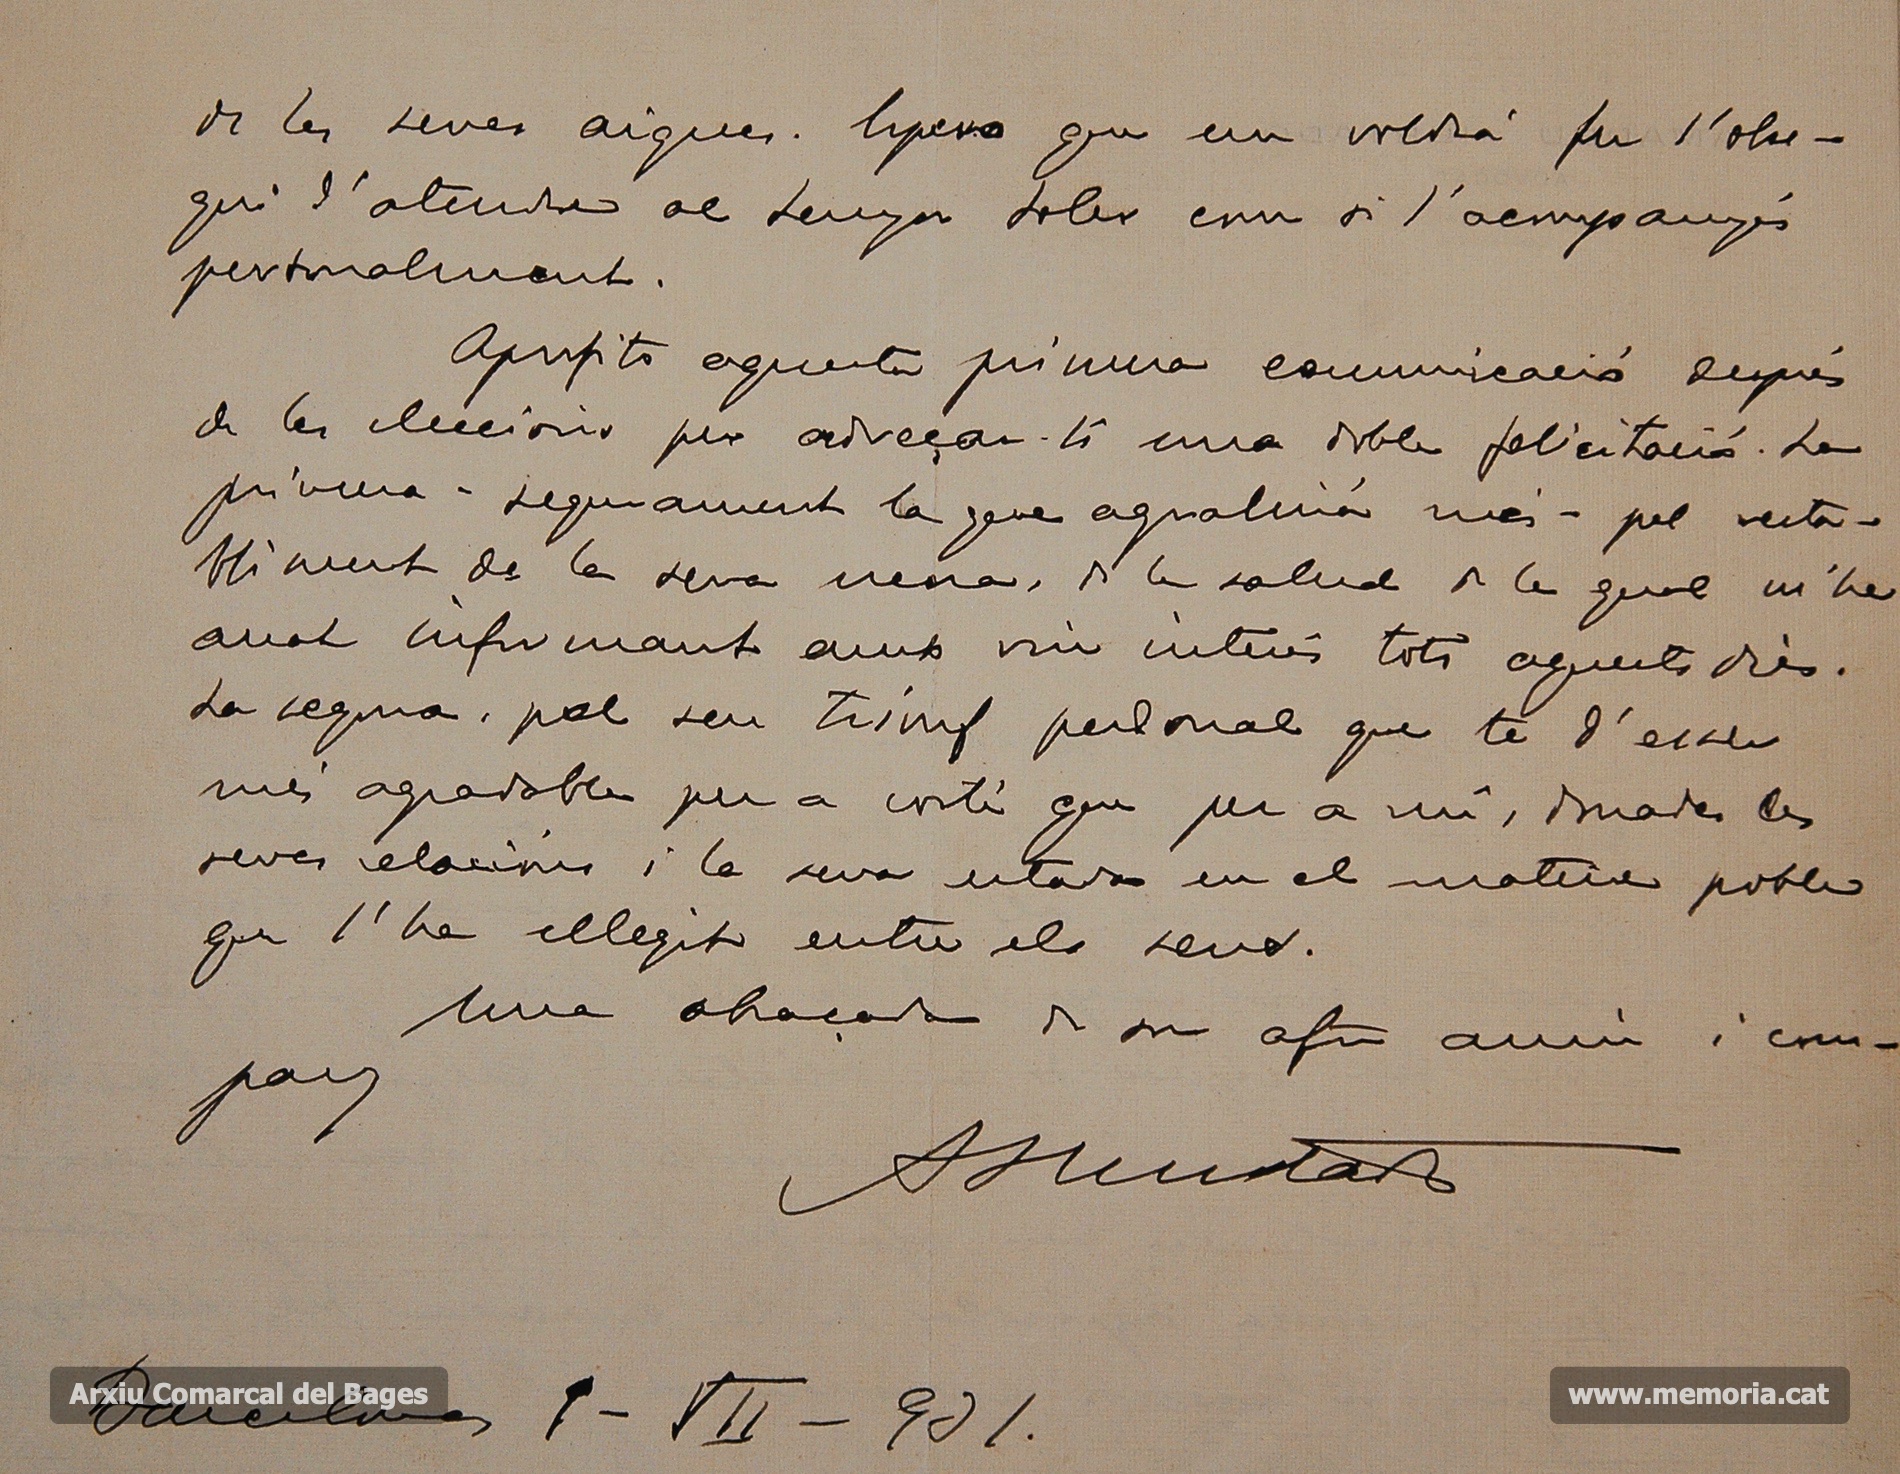 de les seves aigues. Espero que em voldrá fer l'obse-
qui d'atendre al senyor Soler com si l'acompanyés
personalment.
Aprofito aquesta primera comunicació després
de les eleccions per adreçar-li una doble felicitació. La
primera - segurament la que agrairá més - pel resta-
bliment de la seva nena, de la salud de la qual m'he
anat informant amb viu interés tots aquests dies.
La segona, pel seu triomf personal que te d'esser
més agradable per a vosté que per a mi, donades les
seves relacions i la seva estada en el mateix poble
que l'ha ellegit entre els seus.
Una abraçada de son afm amic i com-
pany
Barcelona 1-VII-931.
Arxiu Comarcal del Bages
www.memoria.cat